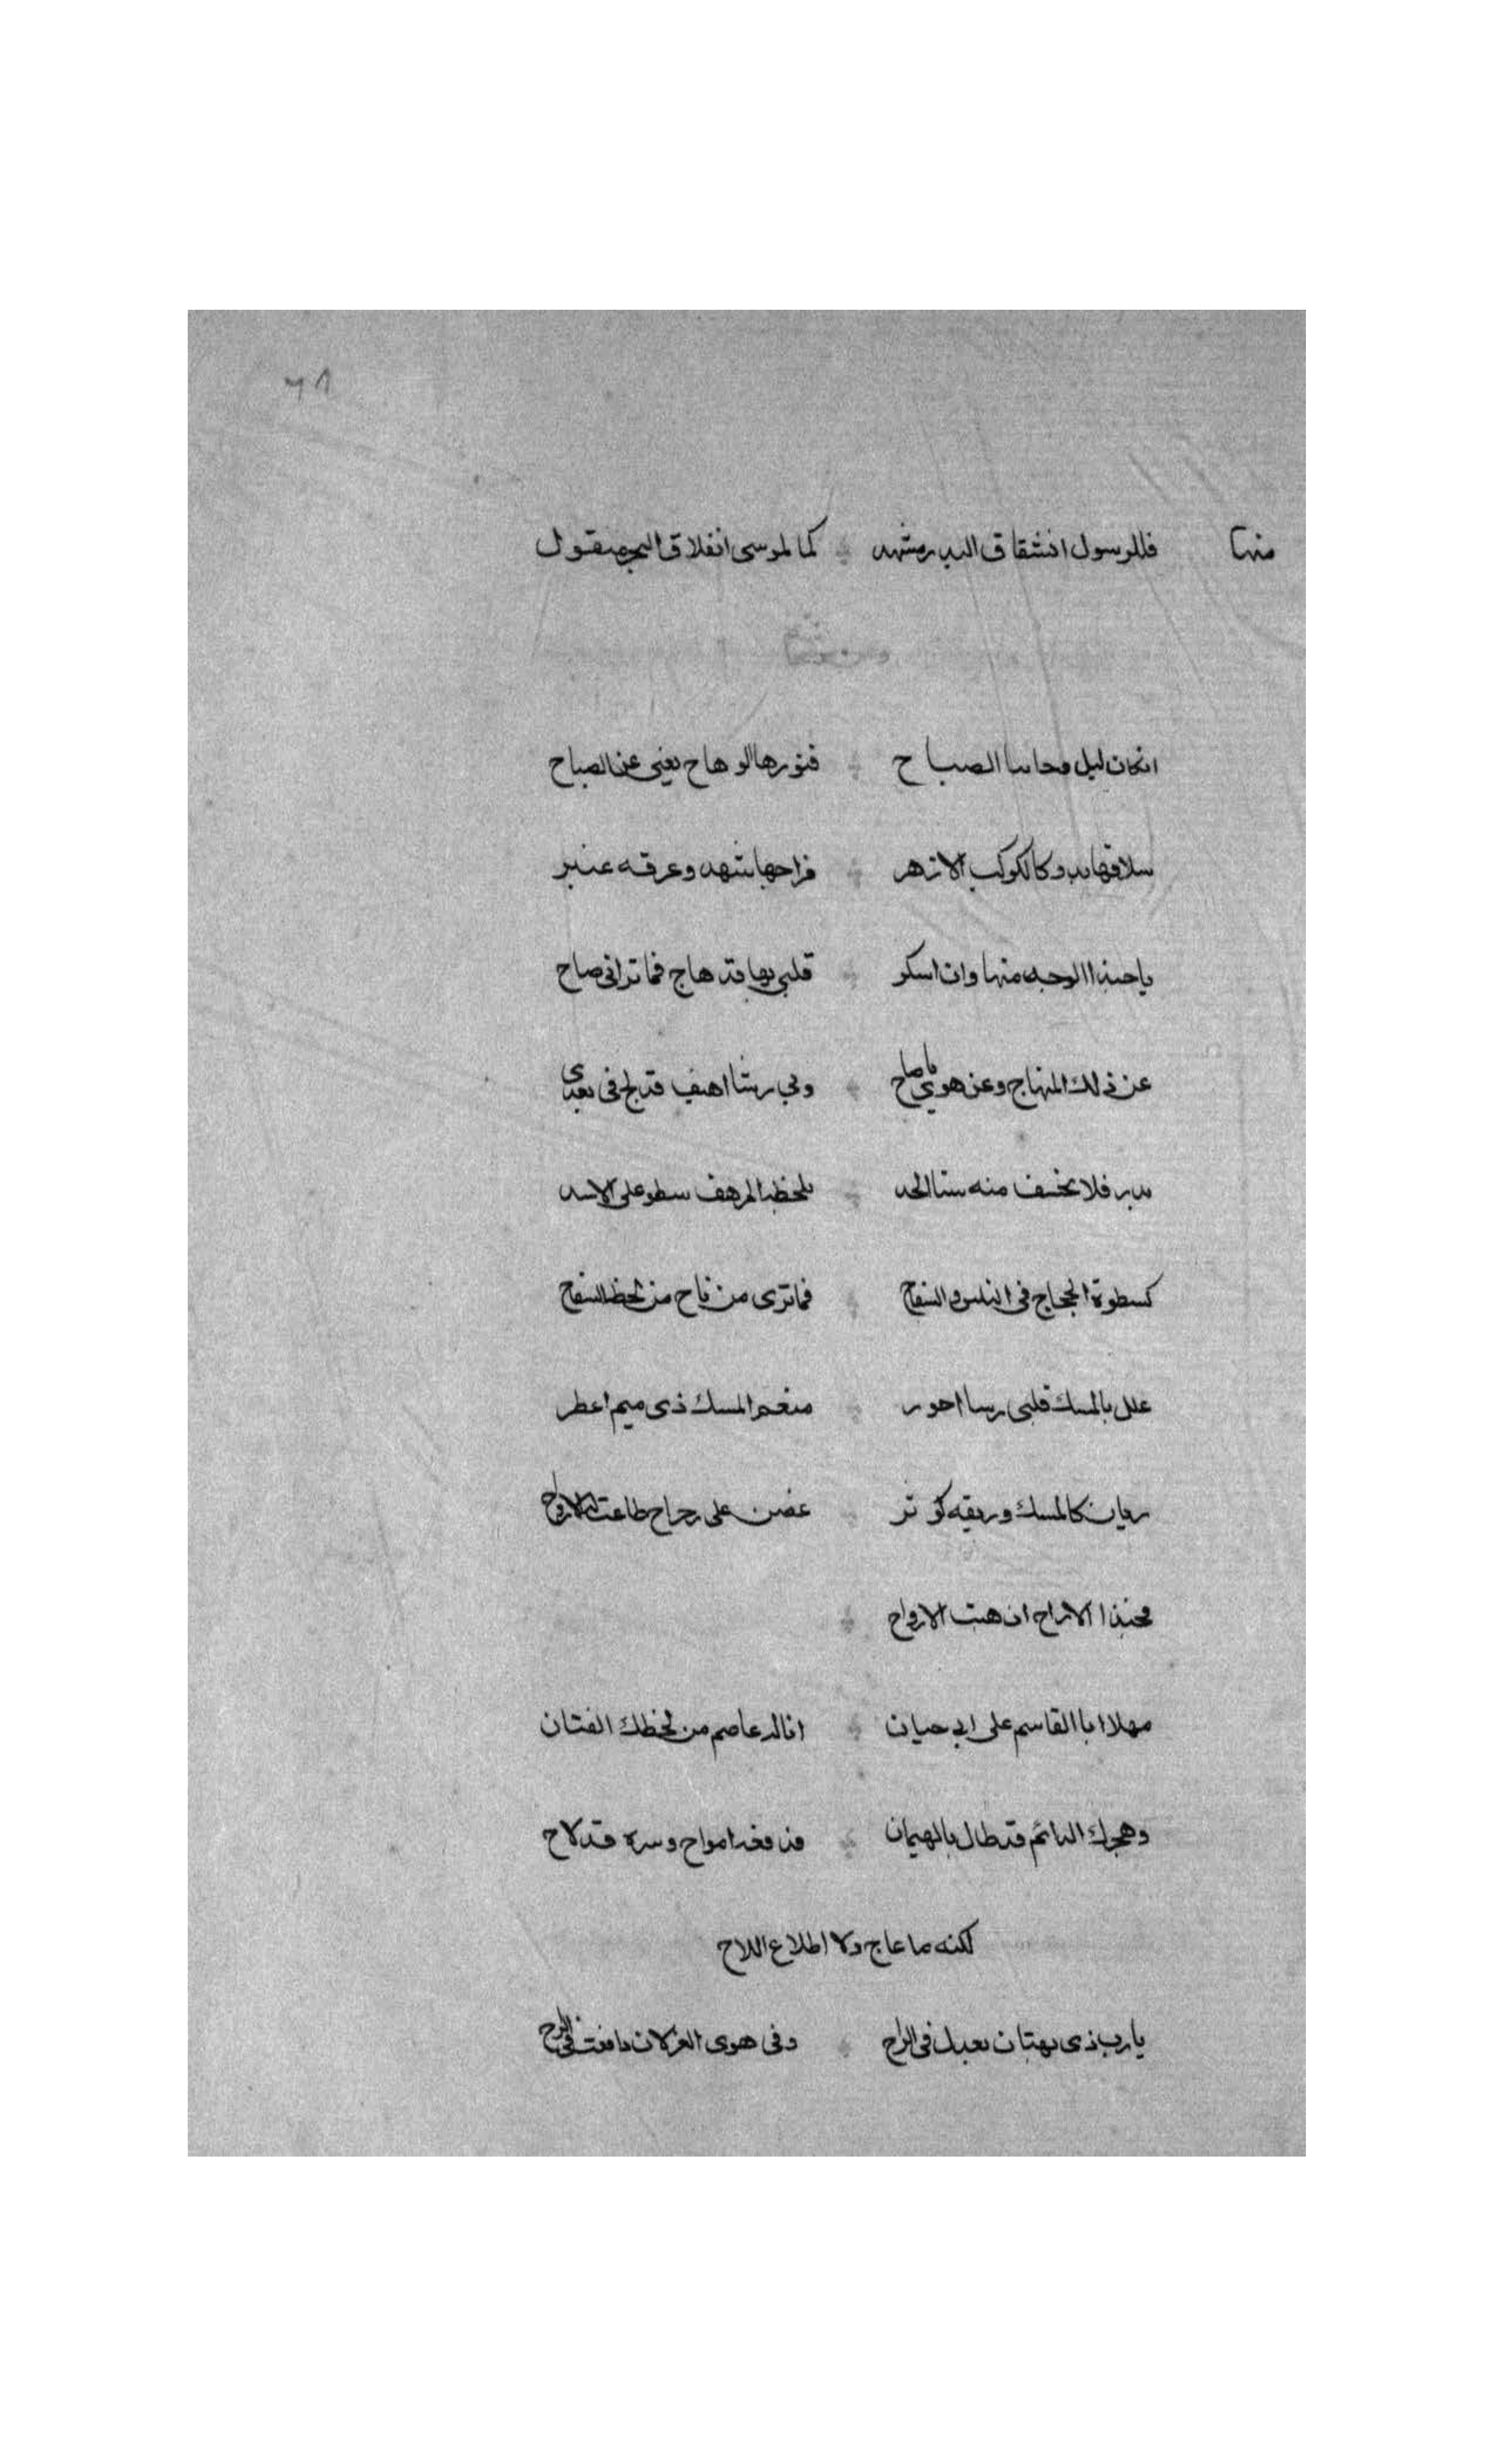 ٦٨
منها فللرسول انشقاق البدر نشهد كما لموسى انفلاق البحر منقول
انكان ليل وحاننا الصباح فنورها الوهاج يغنى عن الصباح
سلافها يبدو كالكوكب الازهر مزاجها شهد وعرفه عنبر
ياحبذا الوجه منها وان اسكر قلبى بها قد هاج فما ترانى صاح
عن ذلك المنهاج وعن هوى ياصاح وبي رشا اهيف قد لج فى بعدى
بدر فلا يخسف منه سنا الخد بلحظه المرهف يسطو على الاسد
كسطوة الحجاج فى الناس والسفاح فما ترى من ناج من لحظه السفاح
علل بالمسك قلبى رشا احور منعم المسك ذى مبسم اعطر
ريان كالمسك وريقه كوثر غصن على رجراج طاعت له الارواح
فحبذا الاراج ان هبت الارواح
مهلا ابا القاسم على ابى حيان ما ان له عاصم من لحظك الفتان
وهجرك الدائم قد طال بالهيمان فدمعه امواج وسره قد لاح
لكنه ما عاج ولا اطاع اللاح
يارب ذى بهتان يعذل فى الراح وفى هوى الغزلان دافعت فى الراح